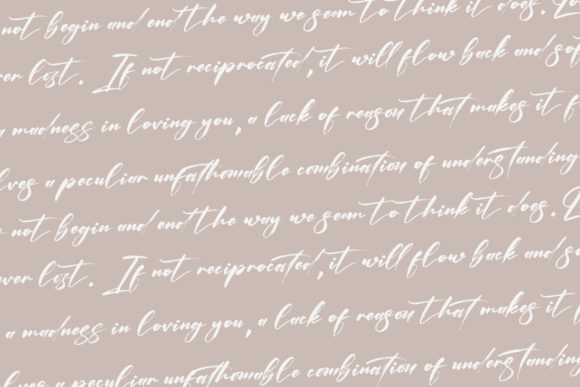 not begin and end the way we seem to think it does. Lo
ver lost. If not reciprocated, it will flow back and sof
a madness in loving you, a lack of reason that makes it f
lves a peculiar unfathomable combination of understanding
not begin and end the way we seem to think it does. L
ver lost. If not reciprocated, it will flow back and so
a madness in loving you, a lack of reason that makes it f
lves a peculiar unfathomable combination of understanding